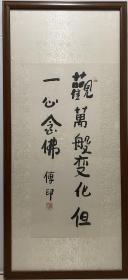 觀萬般变化但
一心念佛 傳印